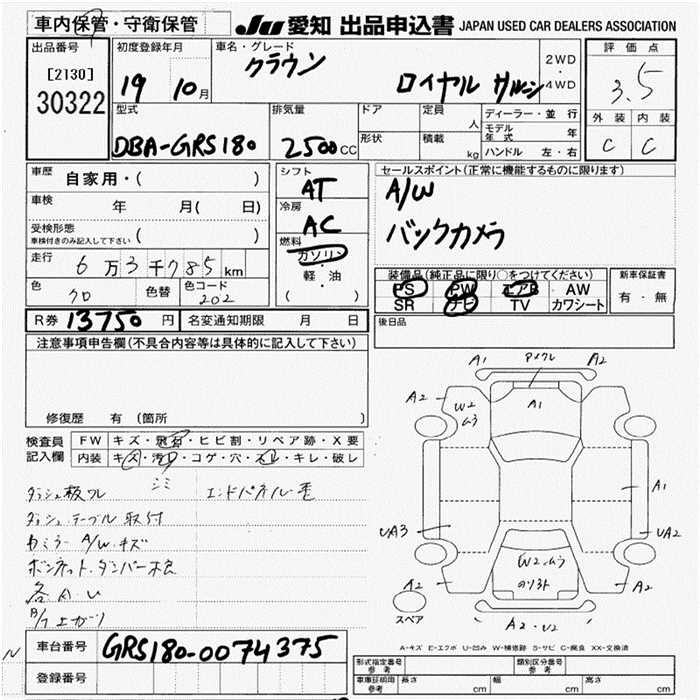 車内保管・守衛保管
JU 愛知 出品申込書 JAPAN USED CAR DEALERS ASSOCIATION
出品番号
[2130]
30322
初度登録年月
19 10月
車名・グレード
クラウン
ロイヤル サルーン
2WD
・
4WD
評価点
3.5
外装 内装
C C
型式
DBA-GRS180
排気量
2500cc
ドア
形状
定員
人
積載
kg
ディーラー・並行
モデル年式 年
ハンドル 左・右
車歴 自家用・( )
車検 年 月(日)
受検形態
車検付きのみ記入して下さい ( )
走行 6万3千785km
色 クロ 色替 色コード 202
シフト
AT
冷房
AC
燃料
ガソリン
・
軽・油
( )
セールスポイント(正常に機能するものに限ります)
A/W
バックカメラ
装備品(純正品に限り○をつけてください)
PS PW エアB AW
SR ナビ TV カワシート
新車保証書
有・無
R券 13750円 名変通知期限 月 日
後日品
注意事項申告欄(不具合内容等は具体的に記入して下さい)
修復歴 有 (箇所 )
検査員記入欄
FW キズ・飛石・ヒビ割・リペア跡・X要
内装 キズ・汚レ・コゲ・穴・スレ・キレ・破レ
シミ
ダッシュ板ワレ エンドパネル歪
ダッシュ・テーブル取付
カミラー A/W・キズ
ボンネット・ダンパー
車台番号 GRS180-0074375
登録番号
N
A1 アメクレ A2
A2 W2ムラ A1
A1
UA3 UA2
W2ムラ
A2 A2
スペア
A2・U2
A-キズ E-エクボ U-凹み W-補修跡 S-サビ C-腐食 XX-交換済
形式指定番号 参考
類別区分番号 参考
車庫証明用 参考
長さ cm 幅 cm 高さ cm